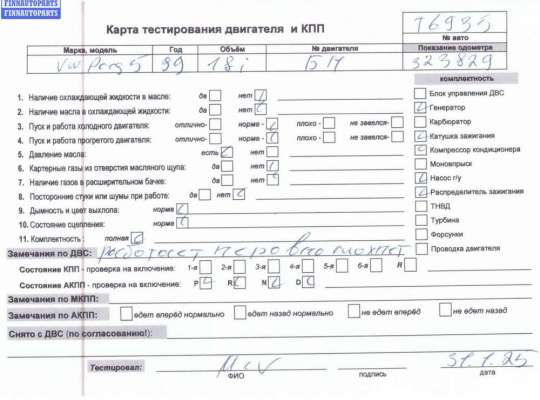 FINNAUTOPARTS
FINNAUTOPARTS
Карта тестирования двигателя и КПП
76935
№ авто
Марка, модель Год Объём № двигателя Показание одометра
99 1.8i БН 323829
КОМПЛЕКТНОСТЬ
1. Наличие охлаждающей жидкости в масле: да нет
Блок управления ДВС
2. Наличие масла в охлаждающей жидкости: да нет
Генератор
3. Пуск и работа холодного двигателя: отлично- норма - плохо - не завелся-
Карбюратор
4. Пуск и работа прогретого двигателя: отлично- норма - плохо - не завелся-
Катушка зажигания
5. Давление масла: есть нет
Компрессор кондиционера
6. Картерные газы из отверстия масляного щупа: да нет
Моновпрыск
7. Наличие газов в расширительном бачке: да нет
Насос г/у
8. Посторонние стуки или шумы при работе: да нет
Распределитель зажигания
9. Дымность и цвет выхлопа: норма
ТНВД
10. Состояние сцепления: норма
Турбина
11. Комплектность : полная
Форсунки
Замечания по ДВС: работает
Проводка двигателя
Состояние КПП - проверка на включение: 1-я 2-я 3-я 4-я 5-я 6-я R
Состояние АКПП - проверка на включение: P R N D
Замечания по МКПП:
Замечания по АКПП: едет вперёд нормально едет назад нормально не едет вперёд не едет назад
Снято с ДВС (по согласованию!):
Тестировал: 31.1.25
ФИО подпись дата